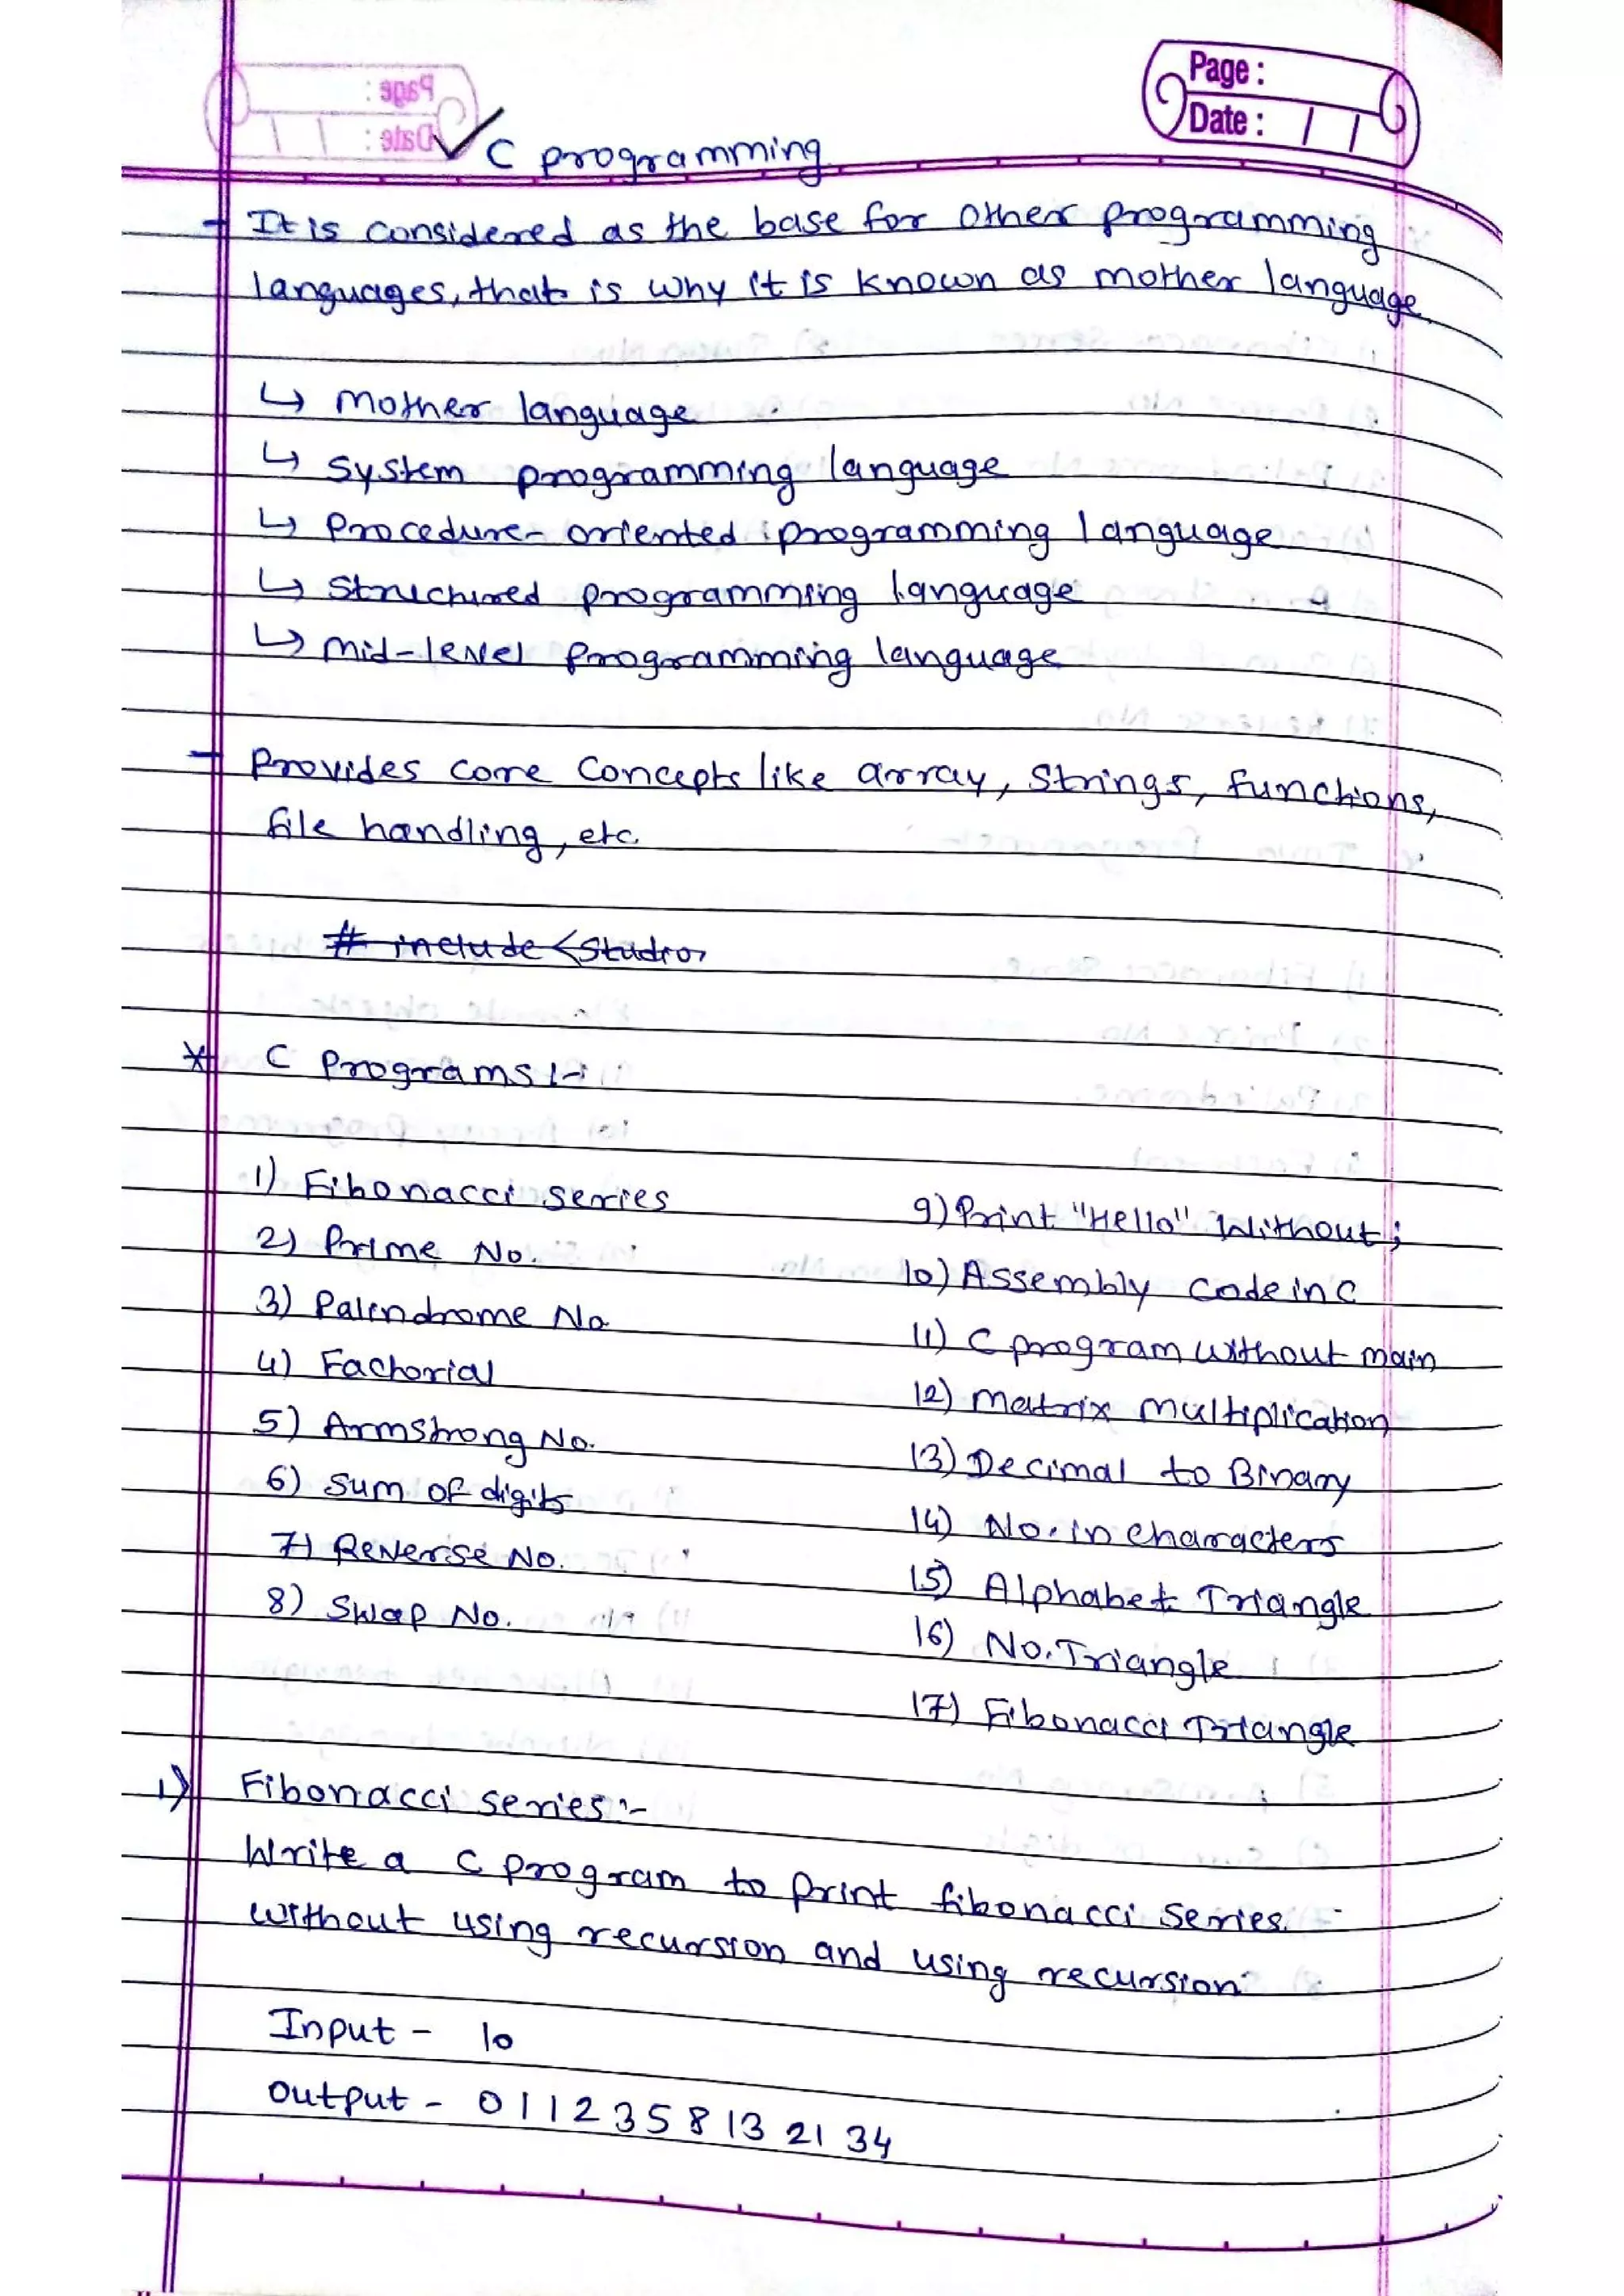 Page :
Date : / /
C programming
- It is considered as the base for other programming
languages, that is why it is known as mother language.
↳ mother language
↳ System programming language
↳ Procedure-oriented programming language
↳ Structured programming language
↳ mid-level programming language
- Provides core concepts like array, Strings, functions,
file handling, etc.
# include <studio>
* C Programs :-
1) Fibonacci series
2) Prime No.
3) Palindrome No
4) Factorial
5) Armstrong No.
6) Sum of digits
7) Reverse No.
8) Swap No.
9) Print "Hello" Without ;
10) Assembly Code in C
11) C program without main
12) matrix multiplication
13) Decimal to Binary
14) No. in characters
15) Alphabet Triangle
16) No. Triangle
17) Fibonacci Triangle
1) Fibonacci series :-
Write a C program to print fibonacci series.
without using recursion and using recursion
Input - 10
Output - 0 1 1 2 3 5 8 13 21 34